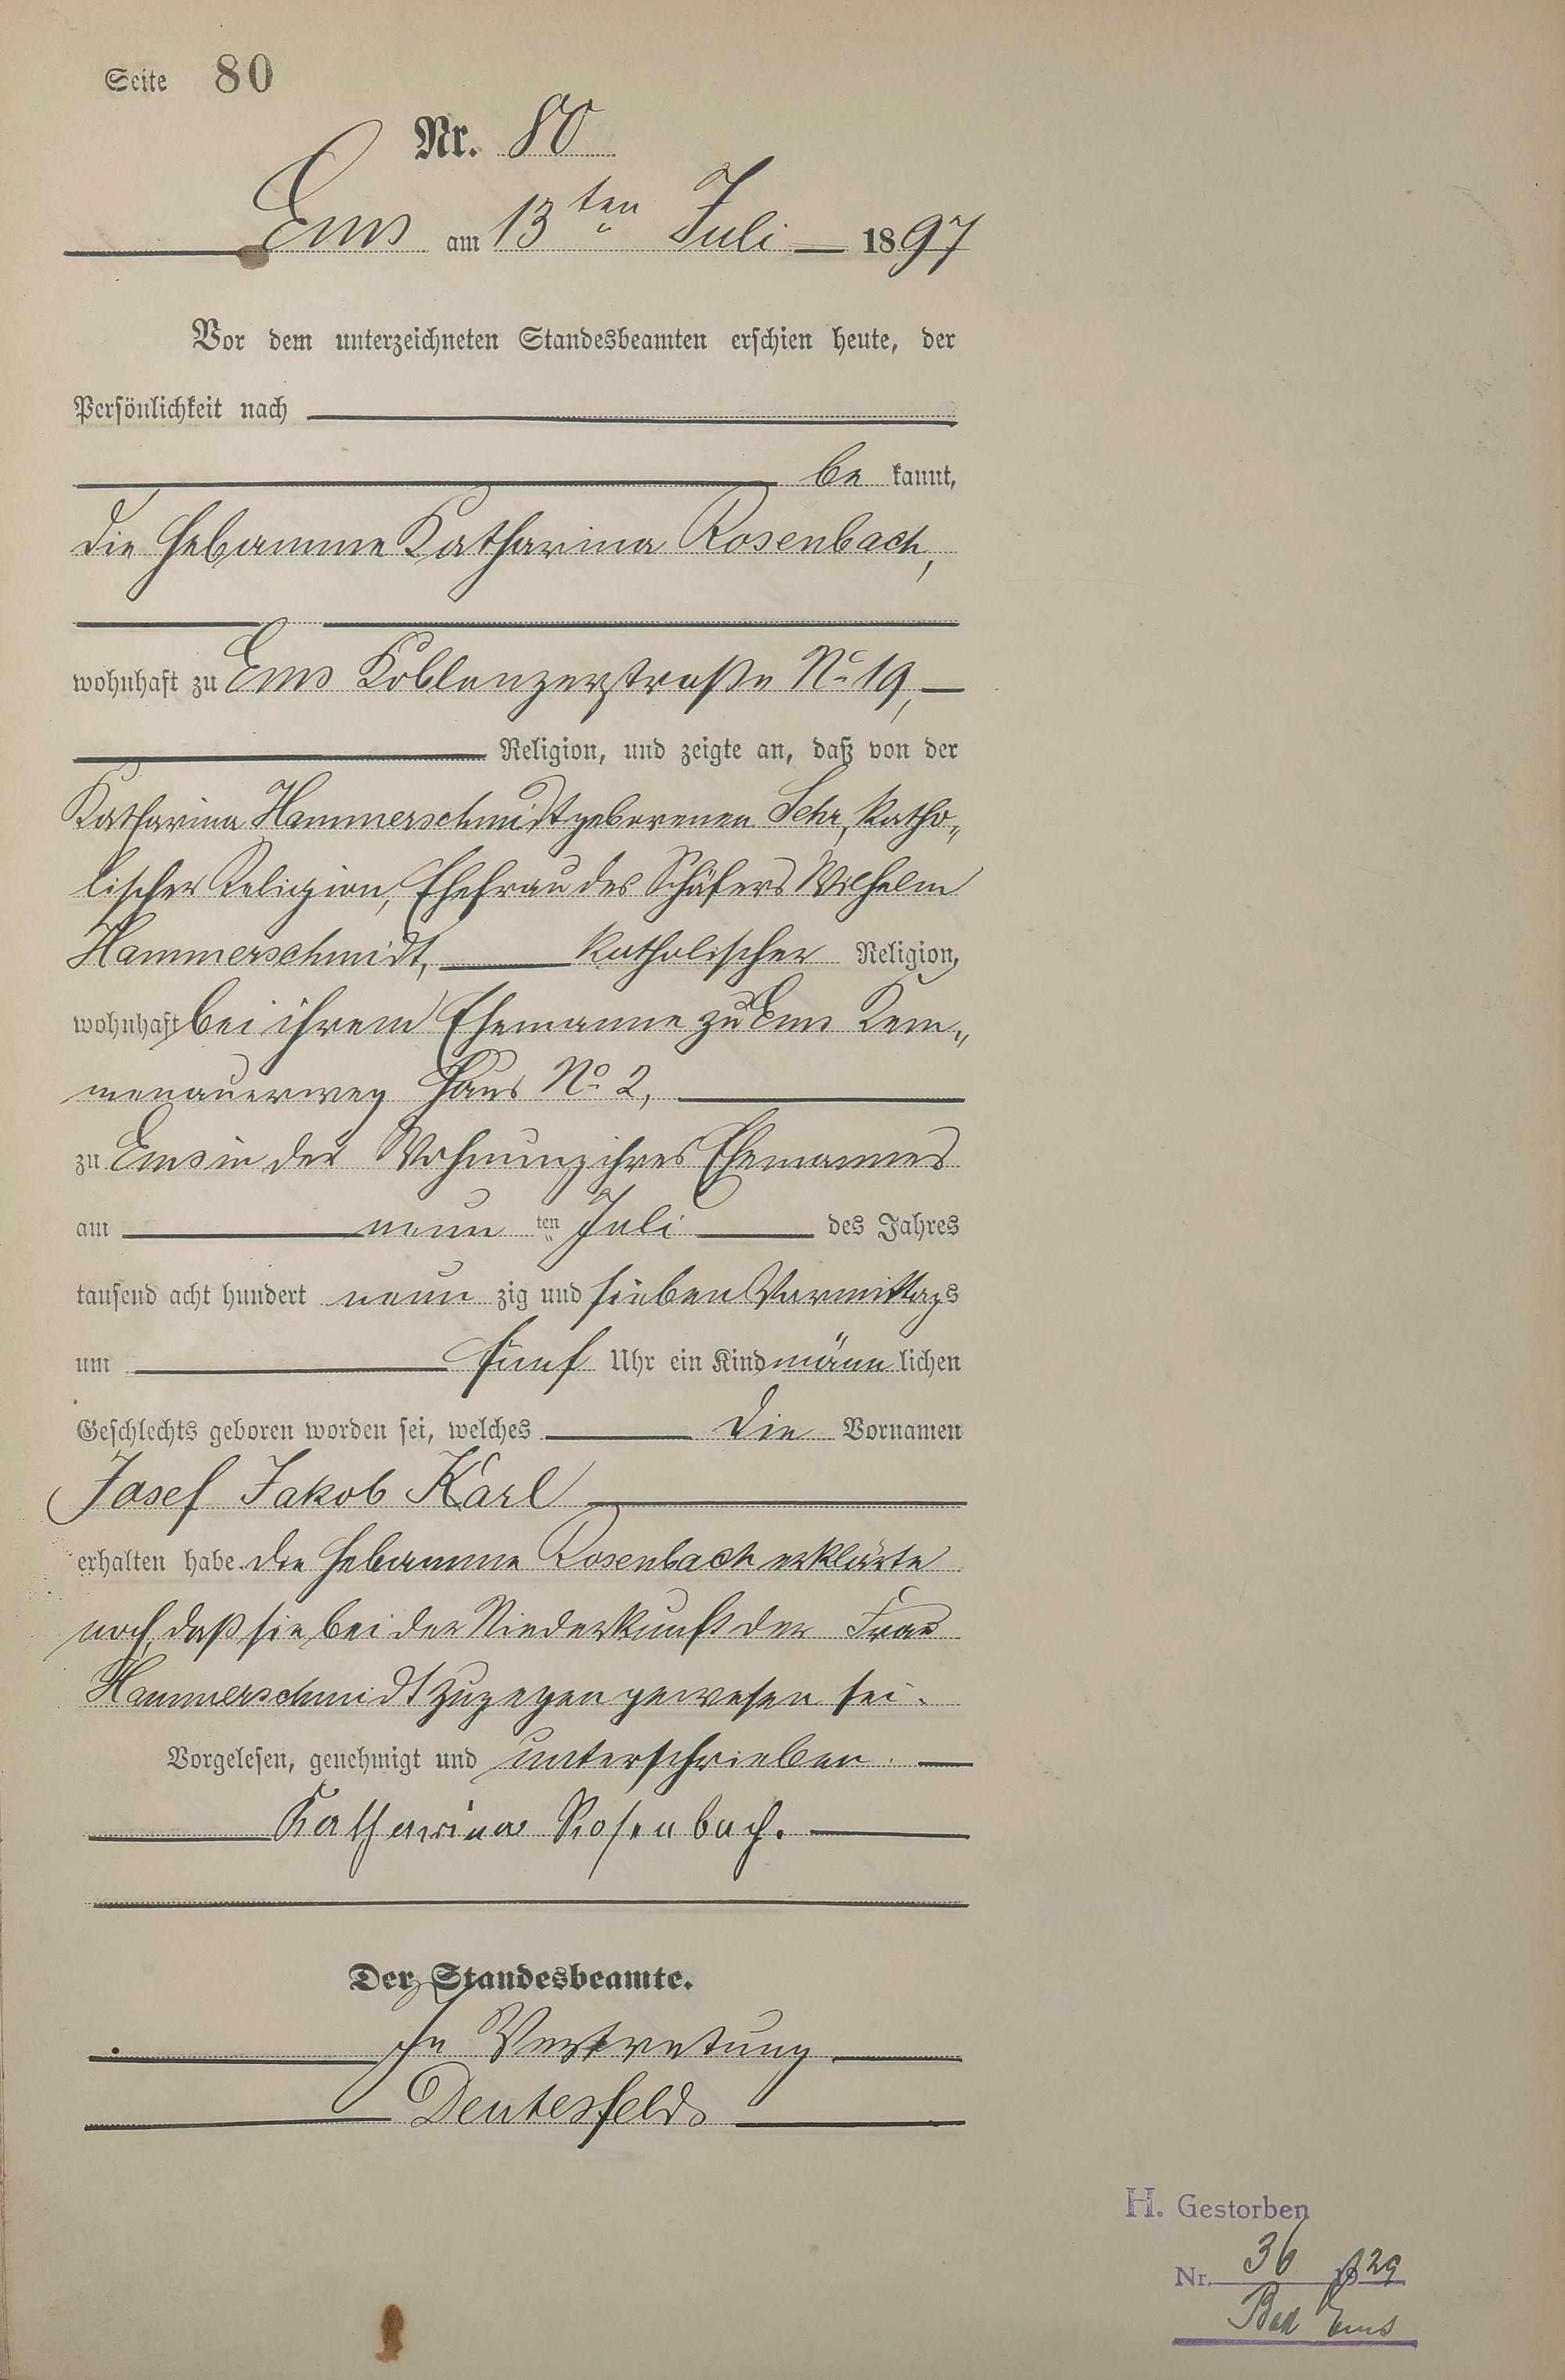 Seite 80
Nr. 80
Ems am 13ten Juli 1897
Vor dem unterzeichneten Standesbeamten erschien heute, der
Persönlichkeit nach
be kannt,
die Hebamme Katharina Rosenbach,
wohnhaft zu Ems Koblenzerstraße No 19,
Religion, und zeigte an, daß von der
Katharina Hammerschmidt geborenen Sehr, katho„
lischer Religion, Ehefrau des Schäfers Wilhelm
Hammerschmidt, katholischer Religion,
wohnhaft bei ihrem Ehemanne zu Ems Kem„
menauerweg Haus No 2,
zu Ems in der Wohnung ihres Ehemannes
am neun ten Juli des Jahres
tausend acht hundert neun zig und sieben Vormittags
um fünf Uhr ein Kind männ lichen
Geschlechts geboren worden sei, welches die Vornamen
Josef Jakob Karl
erhalten habe. Die Hebamme Rosenbach erklärte
noch, daß sie bei der Niederkunft der Frau
Hammerschmidt zugegen gewesen sei.
Vorgelesen, genehmigt und unterschrieben.
Katharina Rosenbach.
Der Standesbeamte.
In Vertretung
Deutesfeld
H. Gestorben
Nr. 36 29
Bad Ems